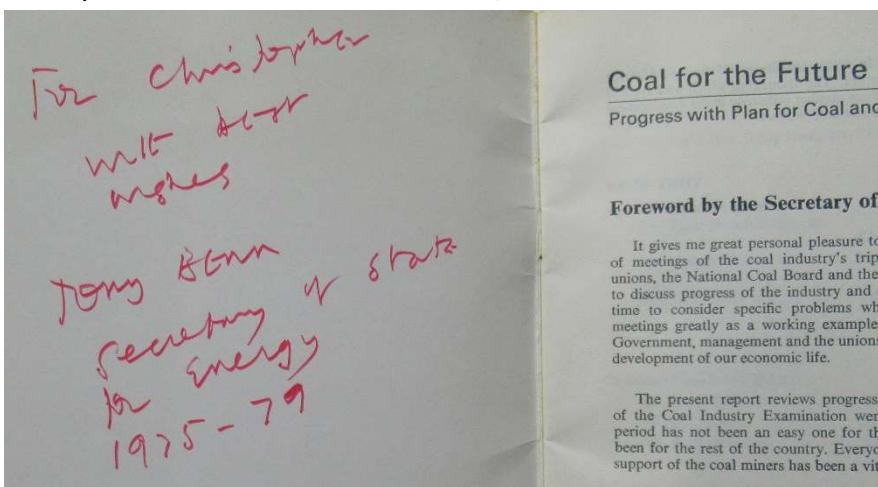 For Christopher
with best
wishes
Tony Benn
Secretary of State
for Energy
1975-79
Coal for the Future
Progress with Plan for Coal and
Foreword by the Secretary of
It gives me great personal pleasure to
of meetings of the coal industry's trip
unions, the National Coal Board and the
to discuss progress of the industry and
time to consider specific problems wh
meetings greatly as a working example
Government, management and the unions
development of our economic life.
The present report reviews progress
of the Coal Industry Examination wer
period has not been an easy one for th
been for the rest of the country. Everyo
support of the coal miners has been a vit